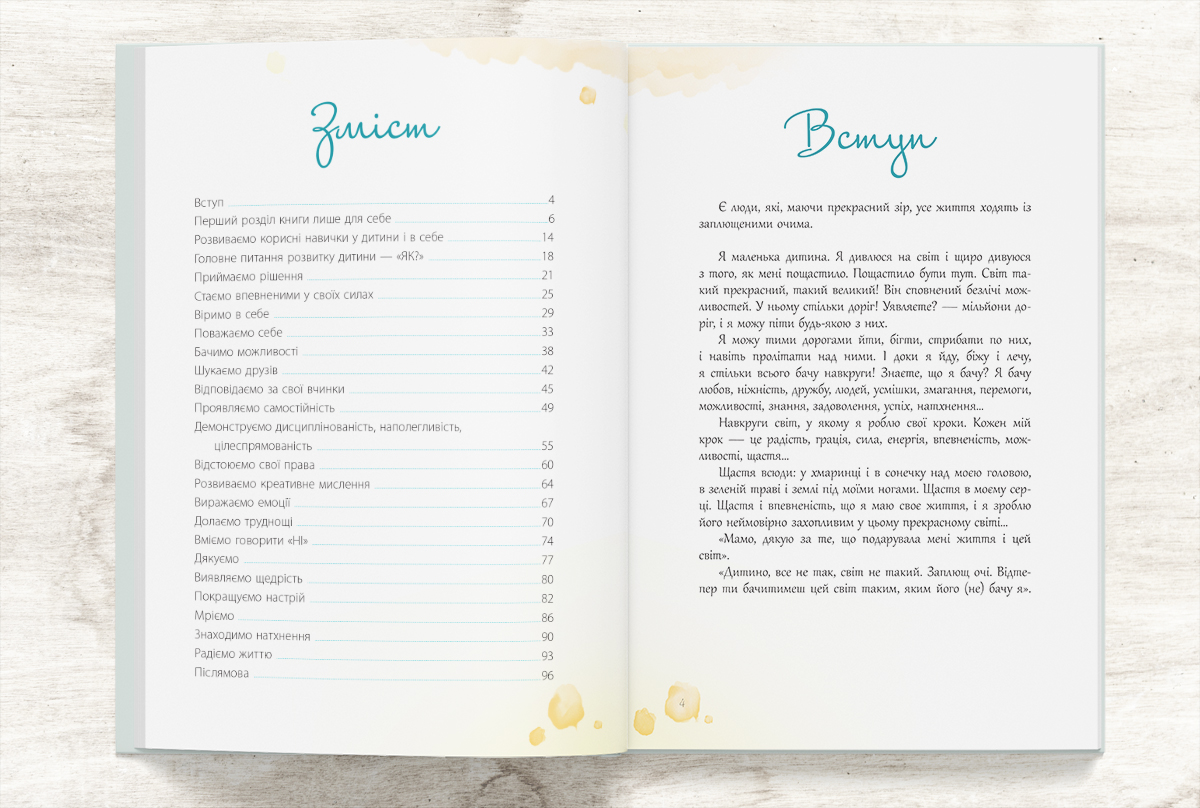 Зміст
Вступ 4
Перший розділ книги лише для себе 6
Розвиваємо корисні навички у дитини і в себе 14
Головне питання розвитку дитини — «ЯК?» 18
Приймаємо рішення 21
Стаємо впевненими у своїх силах 25
Віримо в себе 29
Поважаємо себе 33
Бачимо можливості 38
Шукаємо друзів 42
Відповідаємо за свої вчинки 45
Проявляємо самостійність 49
Демонструємо дисциплінованість, наполегливість,
цілеспрямованість 55
Відстоюємо свої права 60
Розвиваємо креативне мислення 64
Виражаємо емоції 67
Долаємо труднощі 70
Вміємо говорити «НІ» 74
Дякуємо 77
Виявляємо щедрість 80
Покращуємо настрій 82
Мріємо 86
Знаходимо натхнення 90
Радіємо життю 93
Післямова 96
Вступ
Є люди, які, маючи прекрасний зір, усе життя ходять із
заплющеними очима.
Я маленька дитина. Я дивлюся на світ і щиро дивуюся
з того, як мені пощастило. Пощастило бути тут. Світ та-
кий прекрасний, такий великий! Він сповнений безлічі мож-
ливостей. У ньому стільки доріг! Уявляєте? — мільйони до-
ріг, і я можу піти будь-якою з них.
Я можу тими дорогами йти, бігти, стрибати по них,
і навіть пролітати над ними. І доки я йду, біжу і лечу,
я стільки всього бачу навкруги! Знаєте, що я бачу? Я бачу
любов, ніжність, дружбу, людей, усмішки, змагання, перемоги,
можливості, знання, задоволення, успіх, натхнення...
Навкруги світ, у якому я роблю свої кроки. Кожен мій
крок — це радість, грація, сила, енергія, впевненість, мож-
ливості, щастя...
Щастя всюди: у хмаринці і в сонечку над моєю головою,
в зеленій траві і землі під моїми ногами. Щастя в моєму сер-
ці. Щастя і впевненість, що я маю своє життя, і я зроблю
його неймовірно захопливим у цьому прекрасному світі...
«Мамо, дякую за те, що подарувала мені життя і цей
світ».
«Дитино, все не так, світ не такий. Заплющ очі. Відте-
пер ти бачитимеш цей світ таким, яким його (не) бачу я».
4